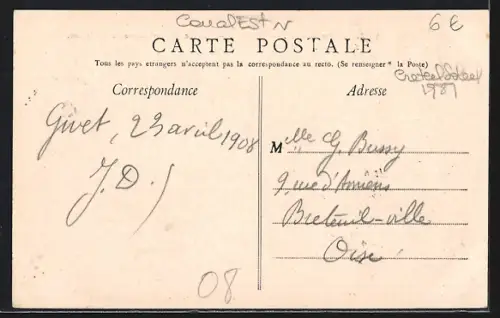 Canal Est N
6 €
CARTE POSTALE
Tous les pays étrangers n'acceptent pas la correspondance au recto. (Se renseigner à la Poste)
Correspondance
Adresse
1987
Givet, 23 avril 1908
J. D.
Mlle G. Bussy
9, rue d'Amiens
Breteuil-ville
Oise
08